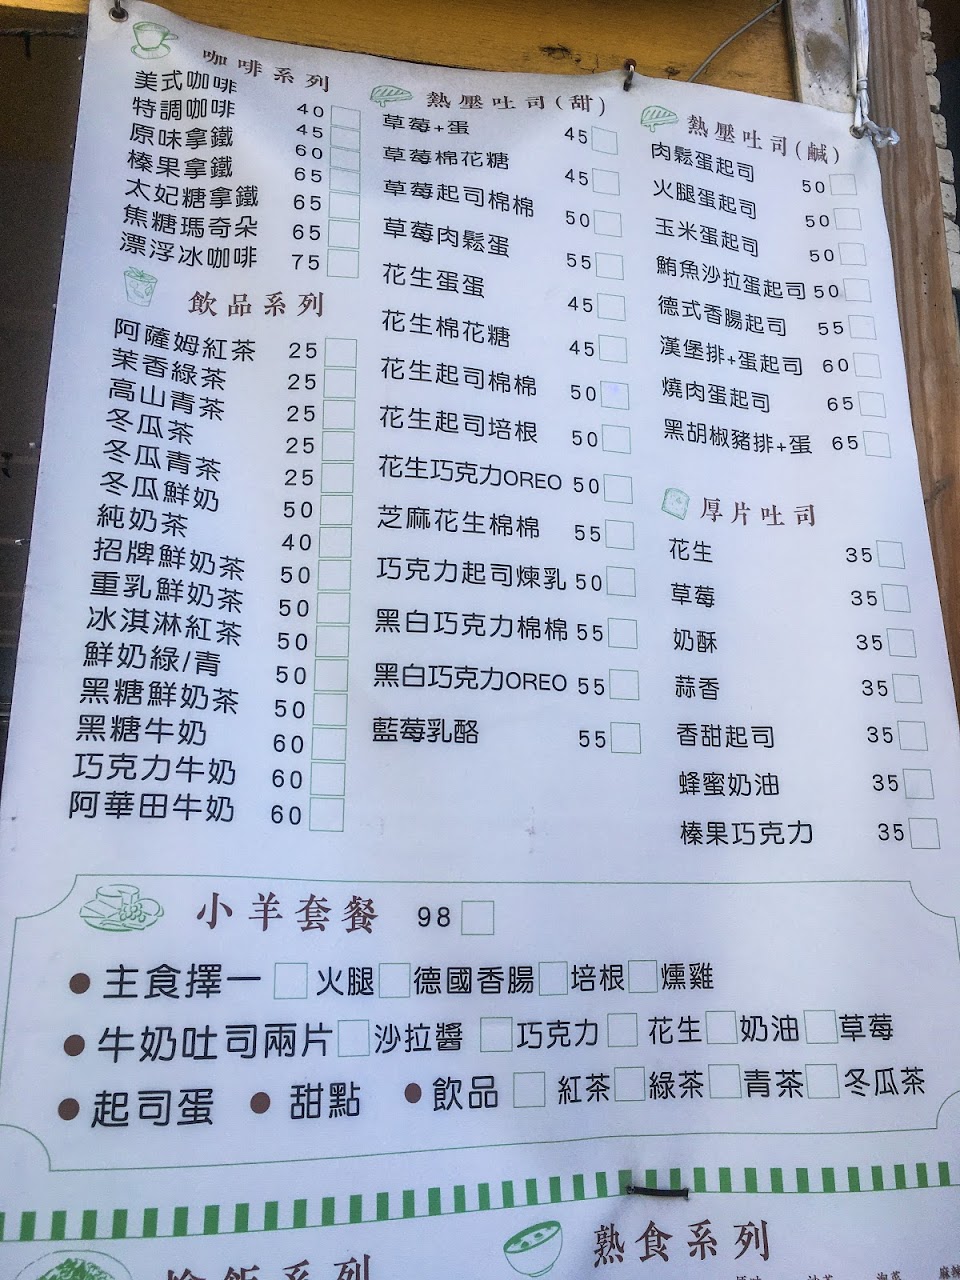 咖啡系列
美式咖啡 40
特調咖啡 45
原味拿鐵 60
榛果拿鐵 65
太妃糖拿鐵 65
焦糖瑪奇朵 65
漂浮冰咖啡 75
飲品系列
阿薩姆紅茶 25
茉香綠茶 25
高山青茶 25
冬瓜茶 25
冬瓜青茶 25
冬瓜鮮奶 50
純奶茶 40
招牌鮮奶茶 50
重乳鮮奶茶 50
冰淇淋紅茶 50
鮮奶綠/青 50
黑糖鮮奶茶 50
黑糖牛奶 60
巧克力牛奶 60
阿華田牛奶 60
熱壓吐司(甜)
草莓+蛋 45
草莓棉花糖 45
草莓起司棉棉 50
草莓肉鬆蛋 55
花生蛋蛋 45
花生棉花糖 45
花生起司棉棉 50
花生起司培根 50
花生巧克力OREO 50
芝麻花生棉棉 55
巧克力起司煉乳 50
黑白巧克力棉棉 55
黑白巧克力OREO 55
藍莓乳酪 55
熱壓吐司(鹹)
肉鬆蛋起司 50
火腿蛋起司 50
玉米蛋起司 50
鮪魚沙拉蛋起司 50
德式香腸起司 55
漢堡排+蛋起司 60
燒肉蛋起司 65
黑胡椒豬排+蛋 65
厚片吐司
花生 35
草莓 35
奶酥 35
蒜香 35
香甜起司 35
蜂蜜奶油 35
榛果巧克力 35
小羊套餐 98
主食擇一 火腿 德國香腸 培根 燻雞
牛奶吐司兩片 沙拉醬 巧克力 花生 奶油 草莓
起司蛋 甜點 飲品 紅茶 綠茶 青茶 冬瓜茶
熟食系列
飯系列